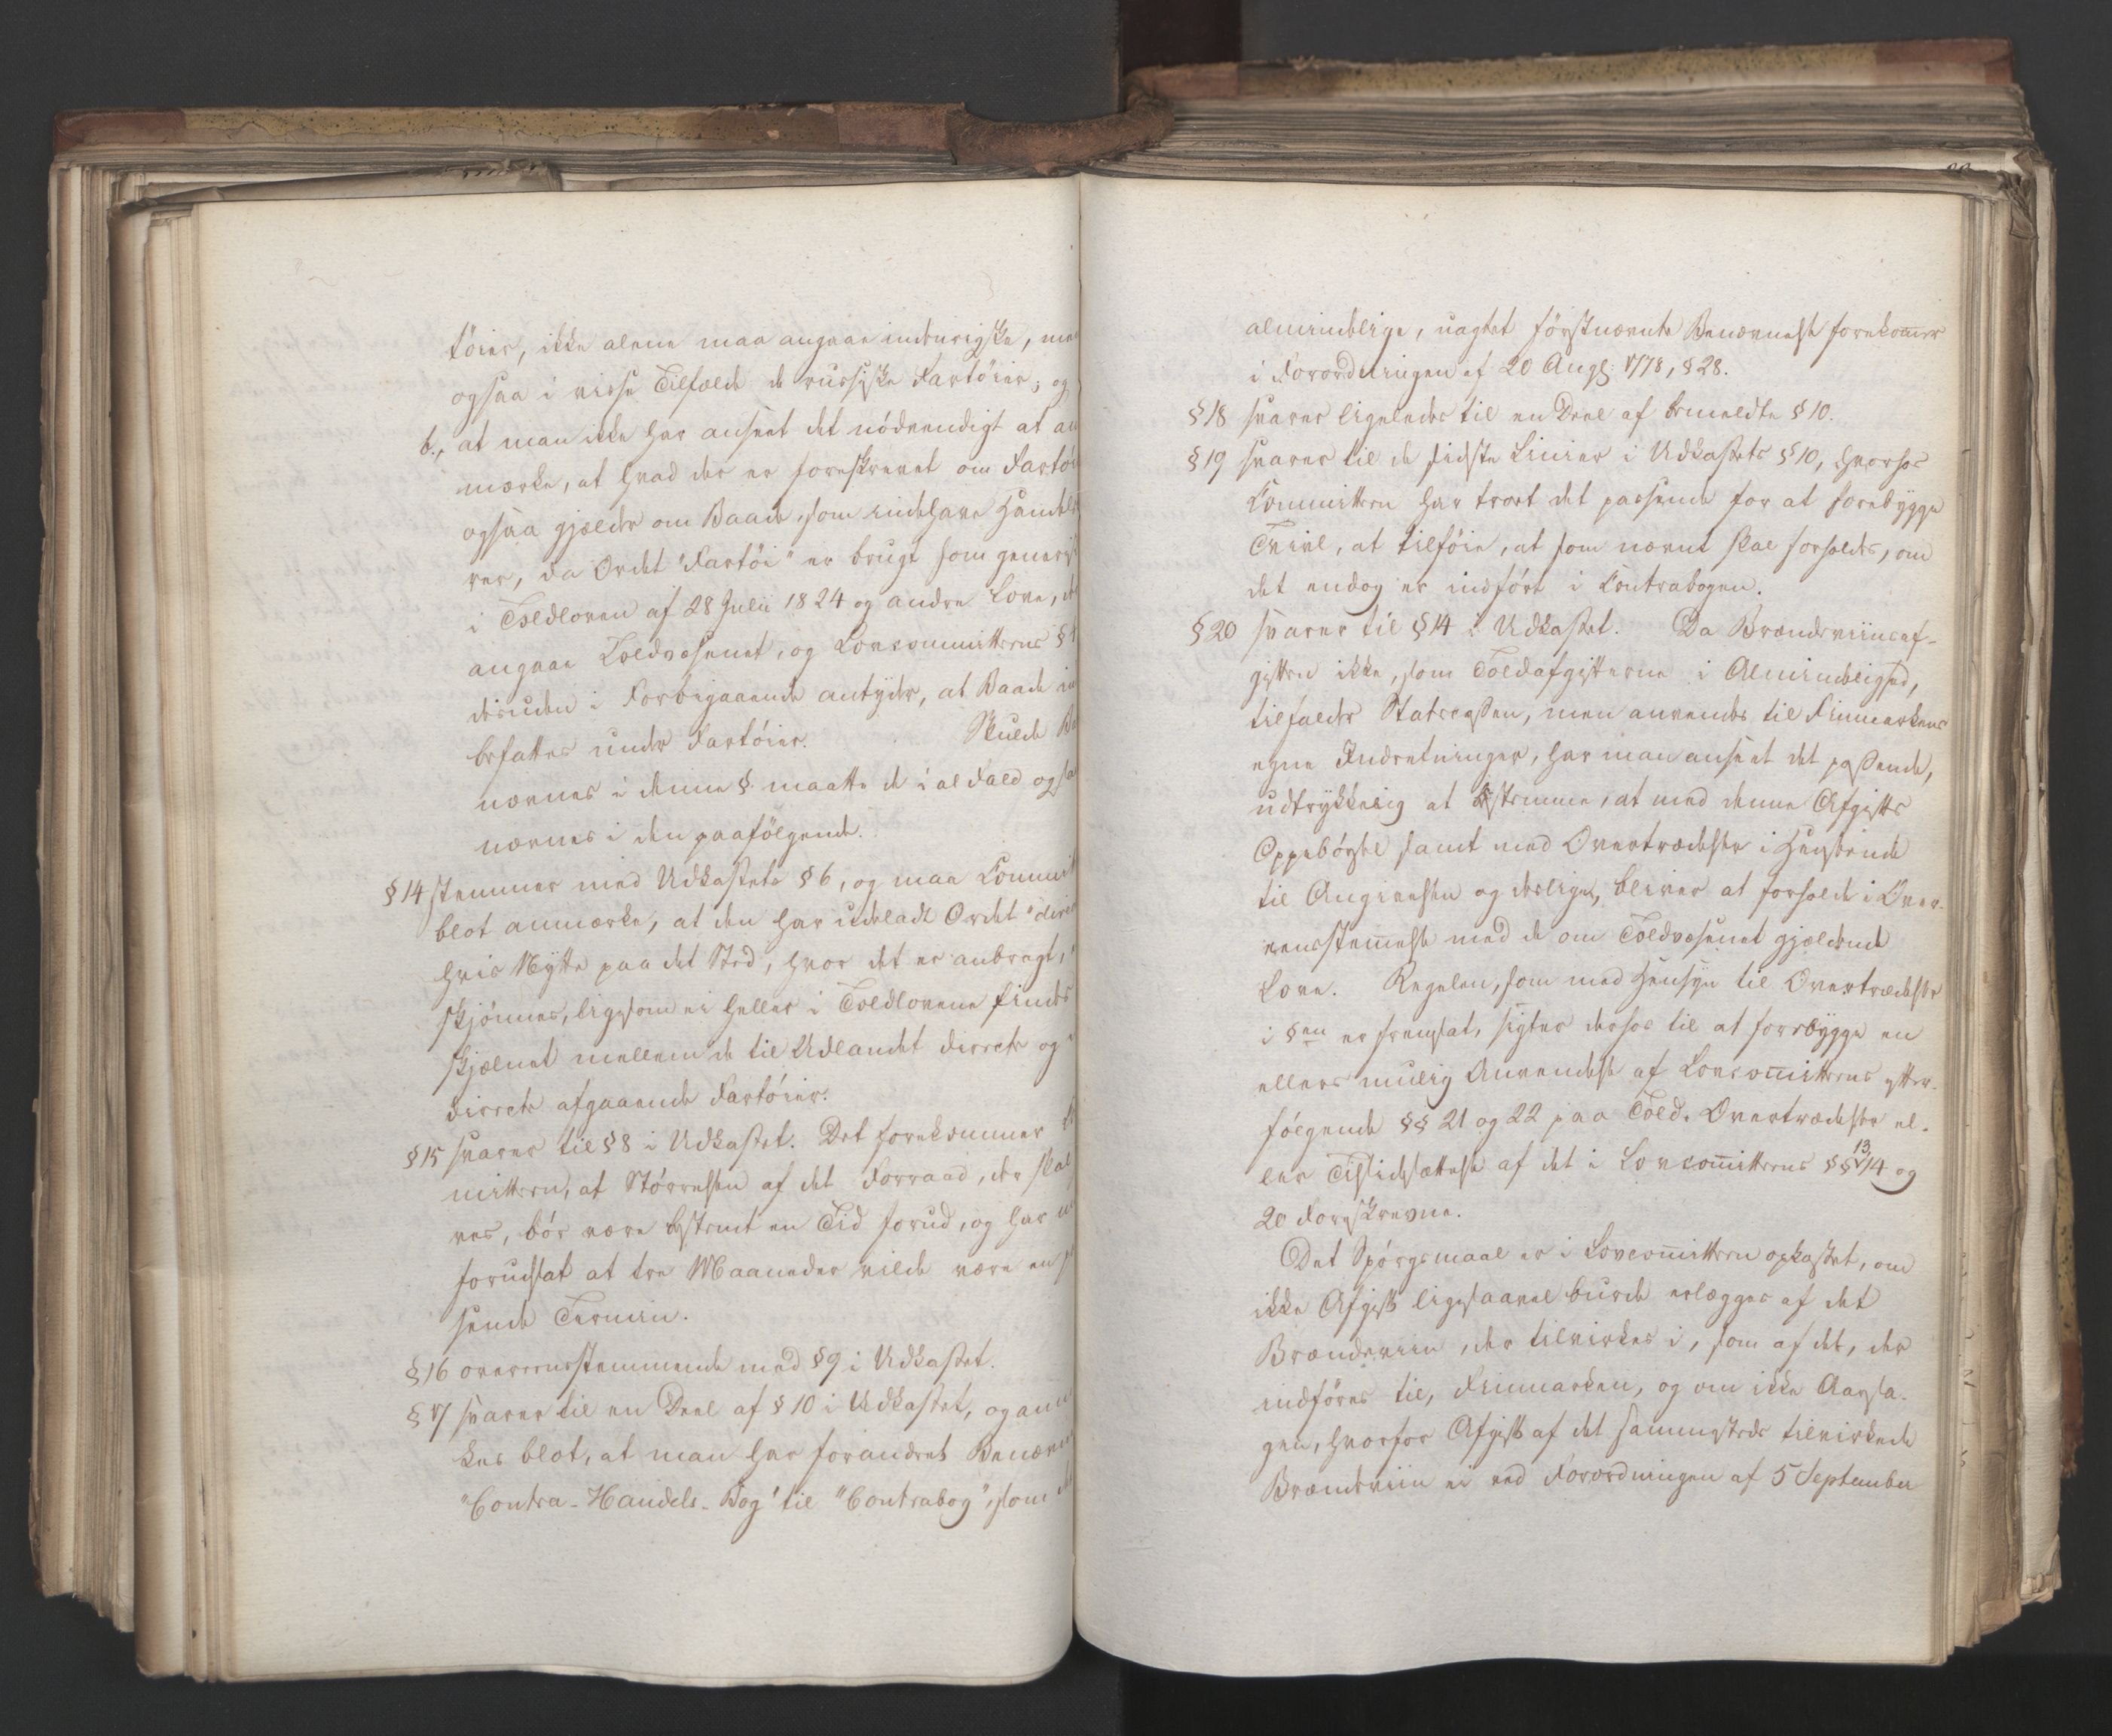 töier, ikke alene maa angaae indenrigske, me
ogsaa i visse Tilfælde de russiske Fartöier, og
b., at man ikke har anseet det nödvendigt at an
mærke, at hvad der er foreskrevet om Fartöi
ogsaa gjelder om Baade, som indehave Handels
rer, da Ordet "Fartöi" er brugt som generis
i Toldloven af 28 Julii 1824 og andre Love,
angaae Toldvæsenet, og Lovcommitteens §
desuden i Forbigaaende antyder, at Baade in
befattes under Fartöier. Skulde Ba
nævnes i denne §. maatte de i al Fald ogsaa
nævnes i den paafölgende.
§ 14 stemmer med Udkastets § 6, og maa Committ
blot anmærke, at den har udeladt Ordet "direc
hvis Nytte paa det Sted, hvor det er anbragt,
skjönnes, ligesom ei heller i Toldlovene findes
skjelnet mellem de til Udlandet directe og
directe afgaaende Fartöier.
§ 15 svarer til § 8 i Udkastet. Det forekommer
mitteen, at Störrelsen af det Forraad, der skal
res, bör være bestemt en Tid forud, og har
forudsat at tre Maaneder vilde være en p
sende Termin.
§ 16 overeensstemmende med § 9 i Udkastet.
§ 17 svarer til en Deel af § 10 i Udkastet, og anm
kes blot, at man har forandret Benævn
"Contra-Handels-Bog" til "Contrabog", som
almindelige, uagtet förstnævnte Benævnelse forekommer
i Forordningen af 20 Augs: 1778, § 28.
§ 18 svarer ligeledes til en Deel af bemeldte § 10.
§ 19 svarer til de sidste Linier i Udkastets § 10, hvorhos
Committeen har troet det passende for at forebygge
Tvivl, at tilföie, at som nævnt skal forholdes, om
det endog er indfört i Contrabogen.
§ 20 svarer til § 14 i Udkastet. Da Brændeviinsaf-
giften ikke, som Toldafgifterne i Almindelighed,
tilfalder Statscassen, men anvendes til Finmarkens
egne Indretninger, har man anseet det passende,
udtrykkelig at bestemme, at med denne Afgifts
Oppebörsel samt med Overtrædelser i Henseende
til Angivelsen og desliges, bliver at forholde i Over-
eensstemmelse med de om Toldvæsenet gjeldende
Love. Regelen, som med Hensyn til Overtrædelser
i §en er fremsat, sigter derhos til at forebygge en
ellers mulig Anvendelse af Lovcommitteens efter-
fölgende §§ 21 og 22 paa Told-Overtrædelser el-
ler Tilsidesættelse af det i Lovcommitteens §§ 13, 14 og
20 Foreskrevne.
Det Spörgsmaal er i Lovcommitteen opkastet, om
ikke Afgift ligesaavel burde erlægges af det
Brændeviin, der tilvirkes i, som af det, der
indföres til, Finmarken, og om ikke Aarsa-
gen, hvorfor Afgift af det sammesteds tilvirkede
Brændeviin ei ved Forordningen af 5 September